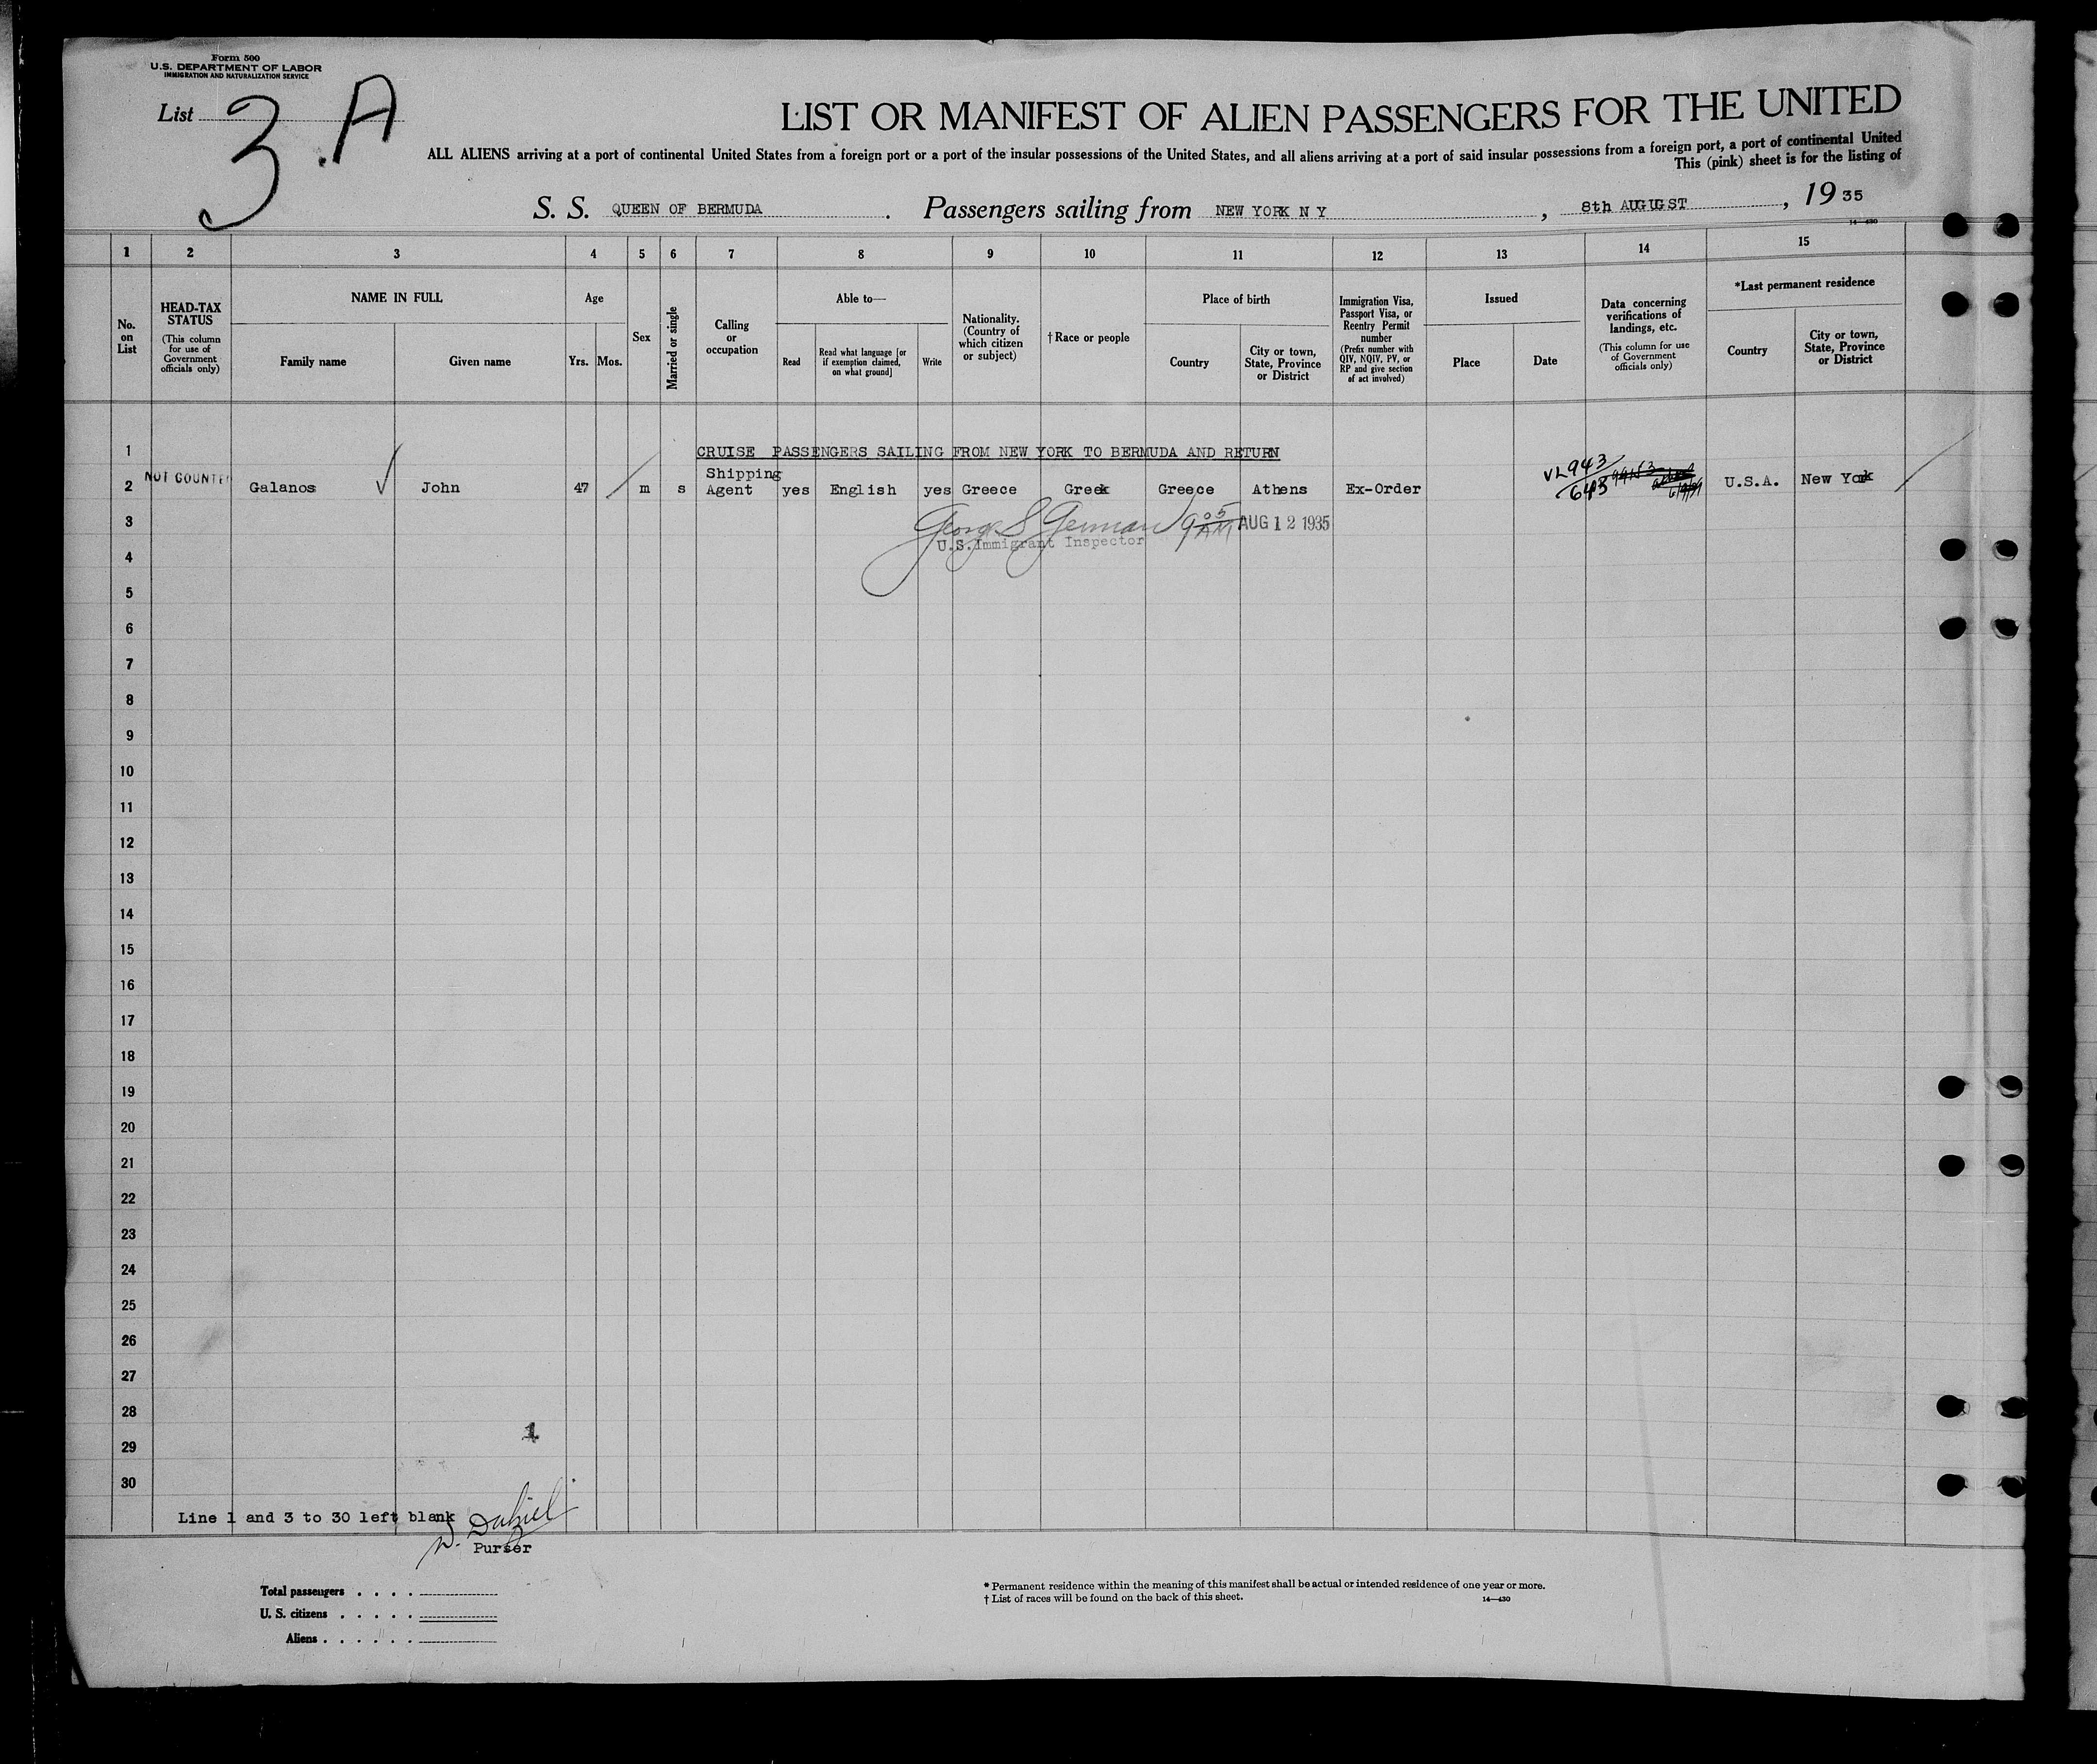 Form 500
U.S. DEPARTMENT OF LABOR
IMMIGRATION AND NATURALIZATION SERVICE
List 3.A
LIST OR MANIFEST OF ALIEN PASSENGERS FOR THE UNITED
ALL ALIENS arriving at a port of continental United States from a foreign port or a port of the insular possessions of the United States, and all aliens arriving at a port of said insular possessions from a foreign port, a port of continental United
This (pink) sheet is for the listing of
S. S. QUEEN OF BERMUDA . Passengers sailing from NEW YORK N Y , 8th AUGUGST , 19 35
14—430
1 2 3 4 5 6 7 8 9 10 11 12 13 14 15
No. on List
HEAD-TAX STATUS
(This column for use of Government officials only)
NAME IN FULL
Family name Given name
Age
Yrs. Mos.
Sex
Married or single
Calling or occupation
Able to—
Read
Read what language [or if exemption claimed, on what ground]
Write
Nationality. (Country of which citizen or subject)
† Race or people
Place of birth
Country
City or town, State, Province or District
Immigration Visa, Passport Visa, or Reentry Permit number
(Prefix number with QIV, NQIV, PV, or RP and give section of act involved)
Issued
Place Date
Data concerning verifications of landings, etc.
(This column for use of Government officials only)
*Last permanent residence
Country
City or town, State, Province or District
1 CRUISE PASSENGERS SAILING FROM NEW YORK TO BERMUDA AND RETURN
NOT COUNTE
VL 943
643
Shipping
2 Galanos John 47 m s Agent yes English yes Greece Greek Greece Athens Ex-Order U.S.A. New York
3 George S German 9 05 AM AUG 12 1935
U.S. Immigrant Inspector
4
5
6
7
8
9
10
11
12
13
14
15
16
17
18
19
20
21
22
23
24
25
26
27
28
1
29
30
Line 1 and 3 to 30 left blank
Purser
Total passengers . . . .
U. S. citizens . . . . .
Aliens . . . . . .
* Permanent residence within the meaning of this manifest shall be actual or intended residence of one year or more.
† List of races will be found on the back of this sheet.
14—430